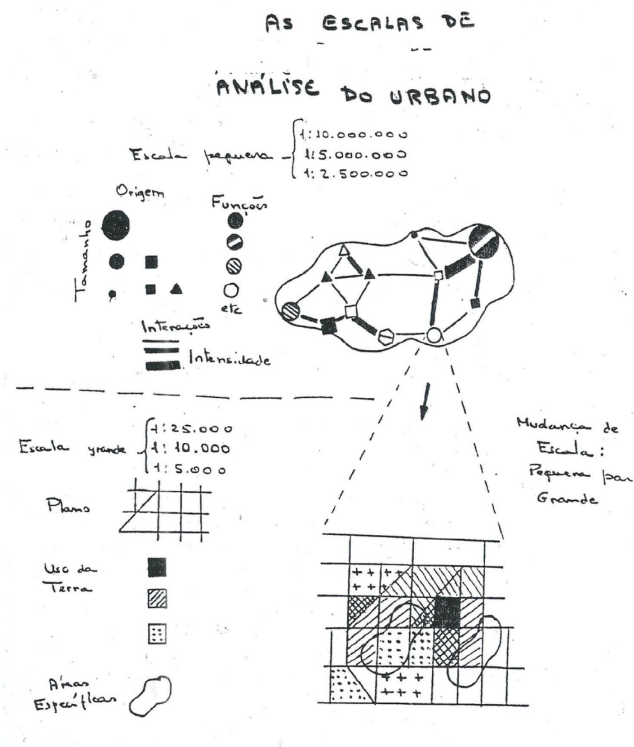 AS ESCALAS DE
ANÁLISE DO URBANO
Escala pequena
1:10.000.000
1:5.000.000
1:2.500.000
Origem
Tamanho
Funções
etc
Interações
Intensidade
Escala grande
1:25.000
1:10.000
1:5.000
Mudança de
Escala:
Pequena par
Grande
Plano
Uso da
Terra
Áreas
Específicas